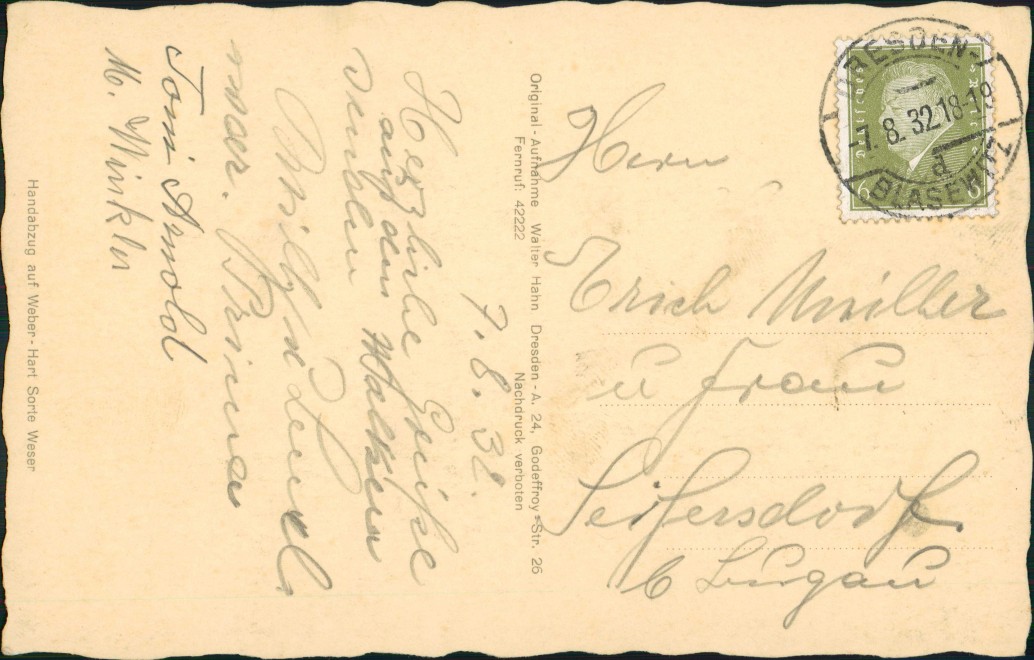 7. 8. 32.
Herzliche Grüße
auf dem
senden
war. Prima
Toni Arnold
M. Winkler
Original-Aufnahme Walter Hahn Dresden-A. 24, Godeffroy-Str. 26
Fernruf: 42222 Nachdruck verboten
Handabzug auf Weber-Hart Sorte Weser
DRESDEN-
-7. 8. 32. 18-19
a
BLASEWITZ
Deutsches Reich
6 6
Herrn
Erich Müller
u Frau
Seifersdorf.
b Lungau